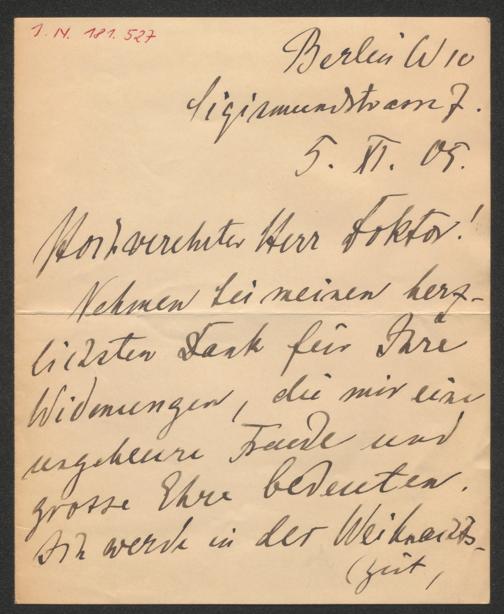 J. N. 181.527
Berlin W 10
Sigismundstrasse 7.
5. XI. 05.
Hochverehrter Herr Doktor!
Nehmen Sie meinen herz-
lichsten Dank für Ihre
Widmungen, die mir eine
ungeheure Freude und
grosse Ehre bedeuten.
Ich werde in der Weihnachts-
zeit,